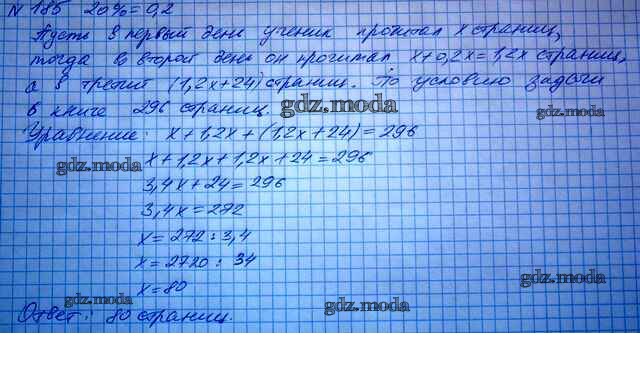 № 185 20% = 0,2
Пусть в первый день ученик прочитал x страниц,
тогда во второй день он прочитал x+0,2x=1,2x страниц,
а в третий (1,2x+24) страниц. По условию задачи
в книге 296 страниц.
gdz.moda
gdz.moda
Уравнение: x+1,2x+(1,2x+24)=296
gdz.moda
x+1,2x+1,2x+24=296
gdz.moda
3,4x+24=296
3,4x=272
x=272:3,4
x=2720:34
gdz.moda
x=80
gdz.moda
gdz.moda
Ответ: 80 страниц.